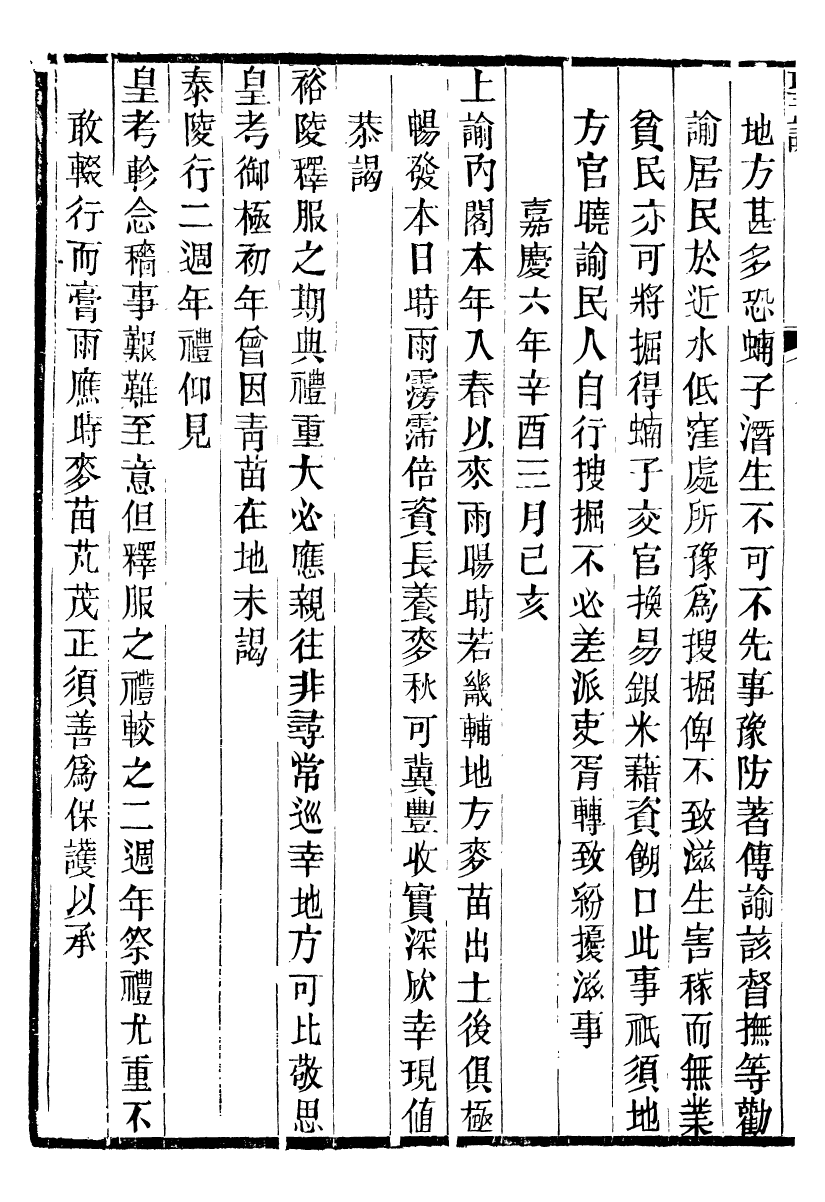 地方甚多恐蝻子潛生不可不先事豫防著傳諭該督撫等勸
諭居民於近水低窪處所豫爲搜掘俾不致滋生害稼而無業
貧民亦可將掘得蝻子交官換易銀米藉資餬口此事祇須地
方官曉諭民人自行搜掘不必差派吏胥轉致紛擾滋事
嘉慶六年辛酉三月己亥
上諭內閣本年入春以來雨暘時若畿輔地方麥苗出土後俱極
暢發本日時雨霶霈倍資長養麥秋可冀豐收實深欣幸現值
恭謁
裕陵釋服之期典禮重大必應親往非尋常巡幸地方可比敬思
皇考御極初年曾因靑苗在地未謁
泰陵行二週年禮仰見
皇考軫念穡事艱難至意但釋服之禮較之二週年祭禮尤重不
敢輟行而膏雨應時麥苗芃茂正須善爲保護以承